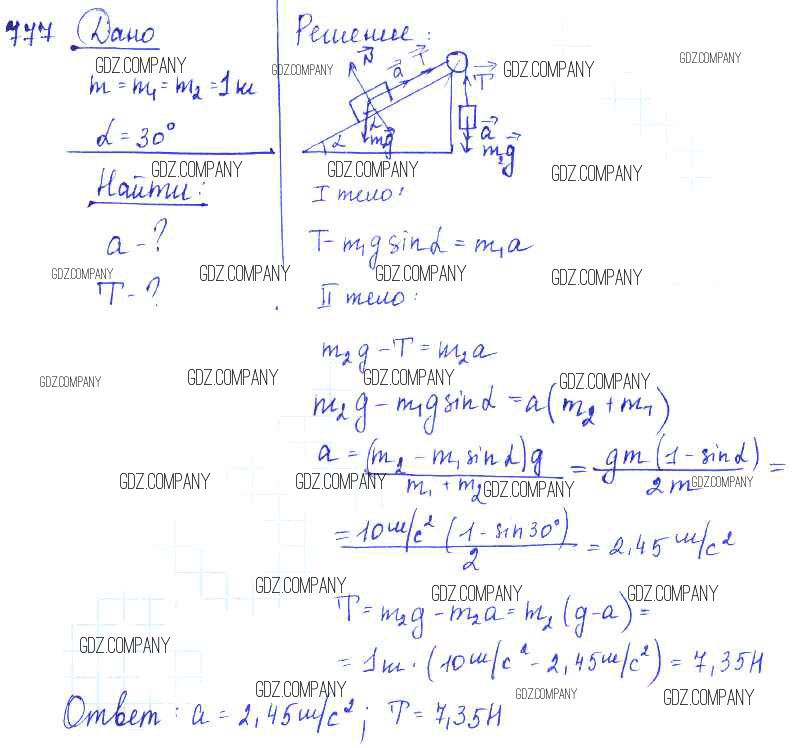 777 Дано
Решение:
GDZ.COMPANY GDZ.COMPANY GDZ.COMPANY GDZ.COMPANY
m = m₁ = m₂ = 1 кг
α = 30°
N a T T
α mg α a m₂g
GDZ.COMPANY GDZ.COMPANY GDZ.COMPANY
Найти:
I тело:
a - ?
T - m₁g sinα = m₁a
GDZ.COMPANY GDZ.COMPANY GDZ.COMPANY GDZ.COMPANY
T - ?
II тело:
m₂g - T = m₂a
GDZ.COMPANY GDZ.COMPANY GDZ.COMPANY GDZ.COMPANY
m₂g - m₁g sinα = a(m₂ + m₁)
a = (m₂ - m₁ sinα)g / m₁ + m₂ = gm(1 - sinα) / 2m =
GDZ.COMPANY GDZ.COMPANY GDZ.COMPANY GDZ.COMPANY
= 10 м/с² (1 - sin30°) / 2 = 2,45 м/с²
GDZ.COMPANY GDZ.COMPANY GDZ.COMPANY
T = m₂g - m₂a = m₂(g - a) =
GDZ.COMPANY
= 1 кг · (10 м/с² - 2,45 м/с²) = 7,35 Н
GDZ.COMPANY GDZ.COMPANY GDZ.COMPANY
Ответ: a = 2,45 м/с²; T = 7,35 Н